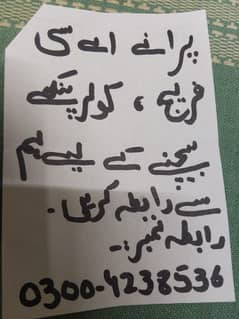 پرانے اے سی
فریج، کولر پنکھے
بیچنے کے لیے ہم
سے رابطہ کریں۔
رابطہ نمبر:۔
0300-4238536